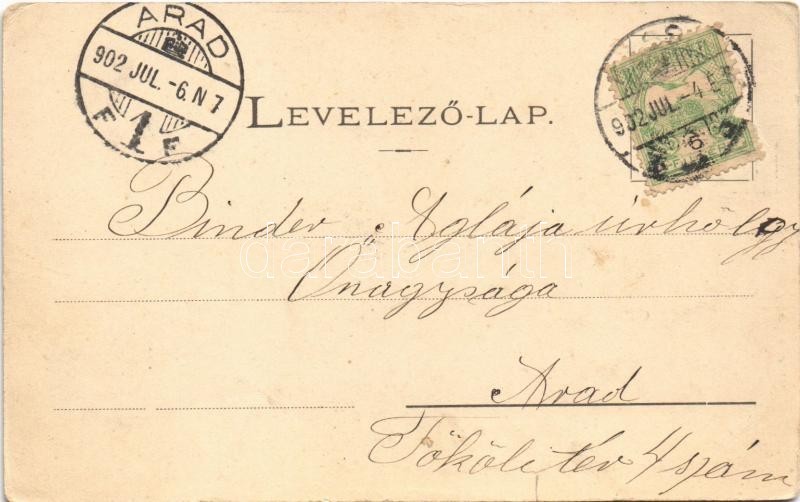 ARAD
902 JUL. -6. N 7
F 1 F
902 JUL. -4. E
6
LEVELEZŐ-LAP.
Binder Aglája úrhölgy
Őnagysága
Arad
Tököli tér 4 szám
darabanth